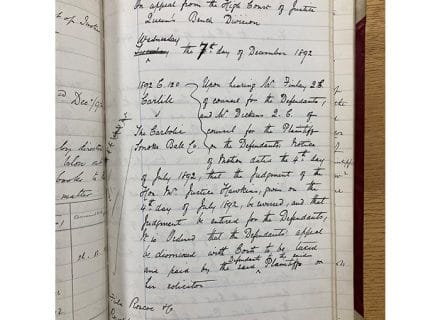 On appeal from the High Court of Justice
Queen's Bench Division
Wednesday
the 7th day of December 1892
1892 C. 120
Carlill
v
The Carbolic
Smoke Ball Co.
Upon hearing Mr Finlay Q.C.
of counsel for the Defendants,
and Mr Dickens Q.C. of
counsel for the Plaintiff
on the Defendants Notice
of Motion dated the 4th day
of July 1892, that the Judgment of the
Hon. Mr Justice Hawkins, given on the
4th day of July 1892, be reversed, and that
Judgment be entered for the Defendants,
It is Ordered that the Defendants appeal
be dismissed with Costs to be taxed
and paid by the Defendants to the said Plaintiff or
her solicitors
Roscoe &
ed Dec
books to
matter